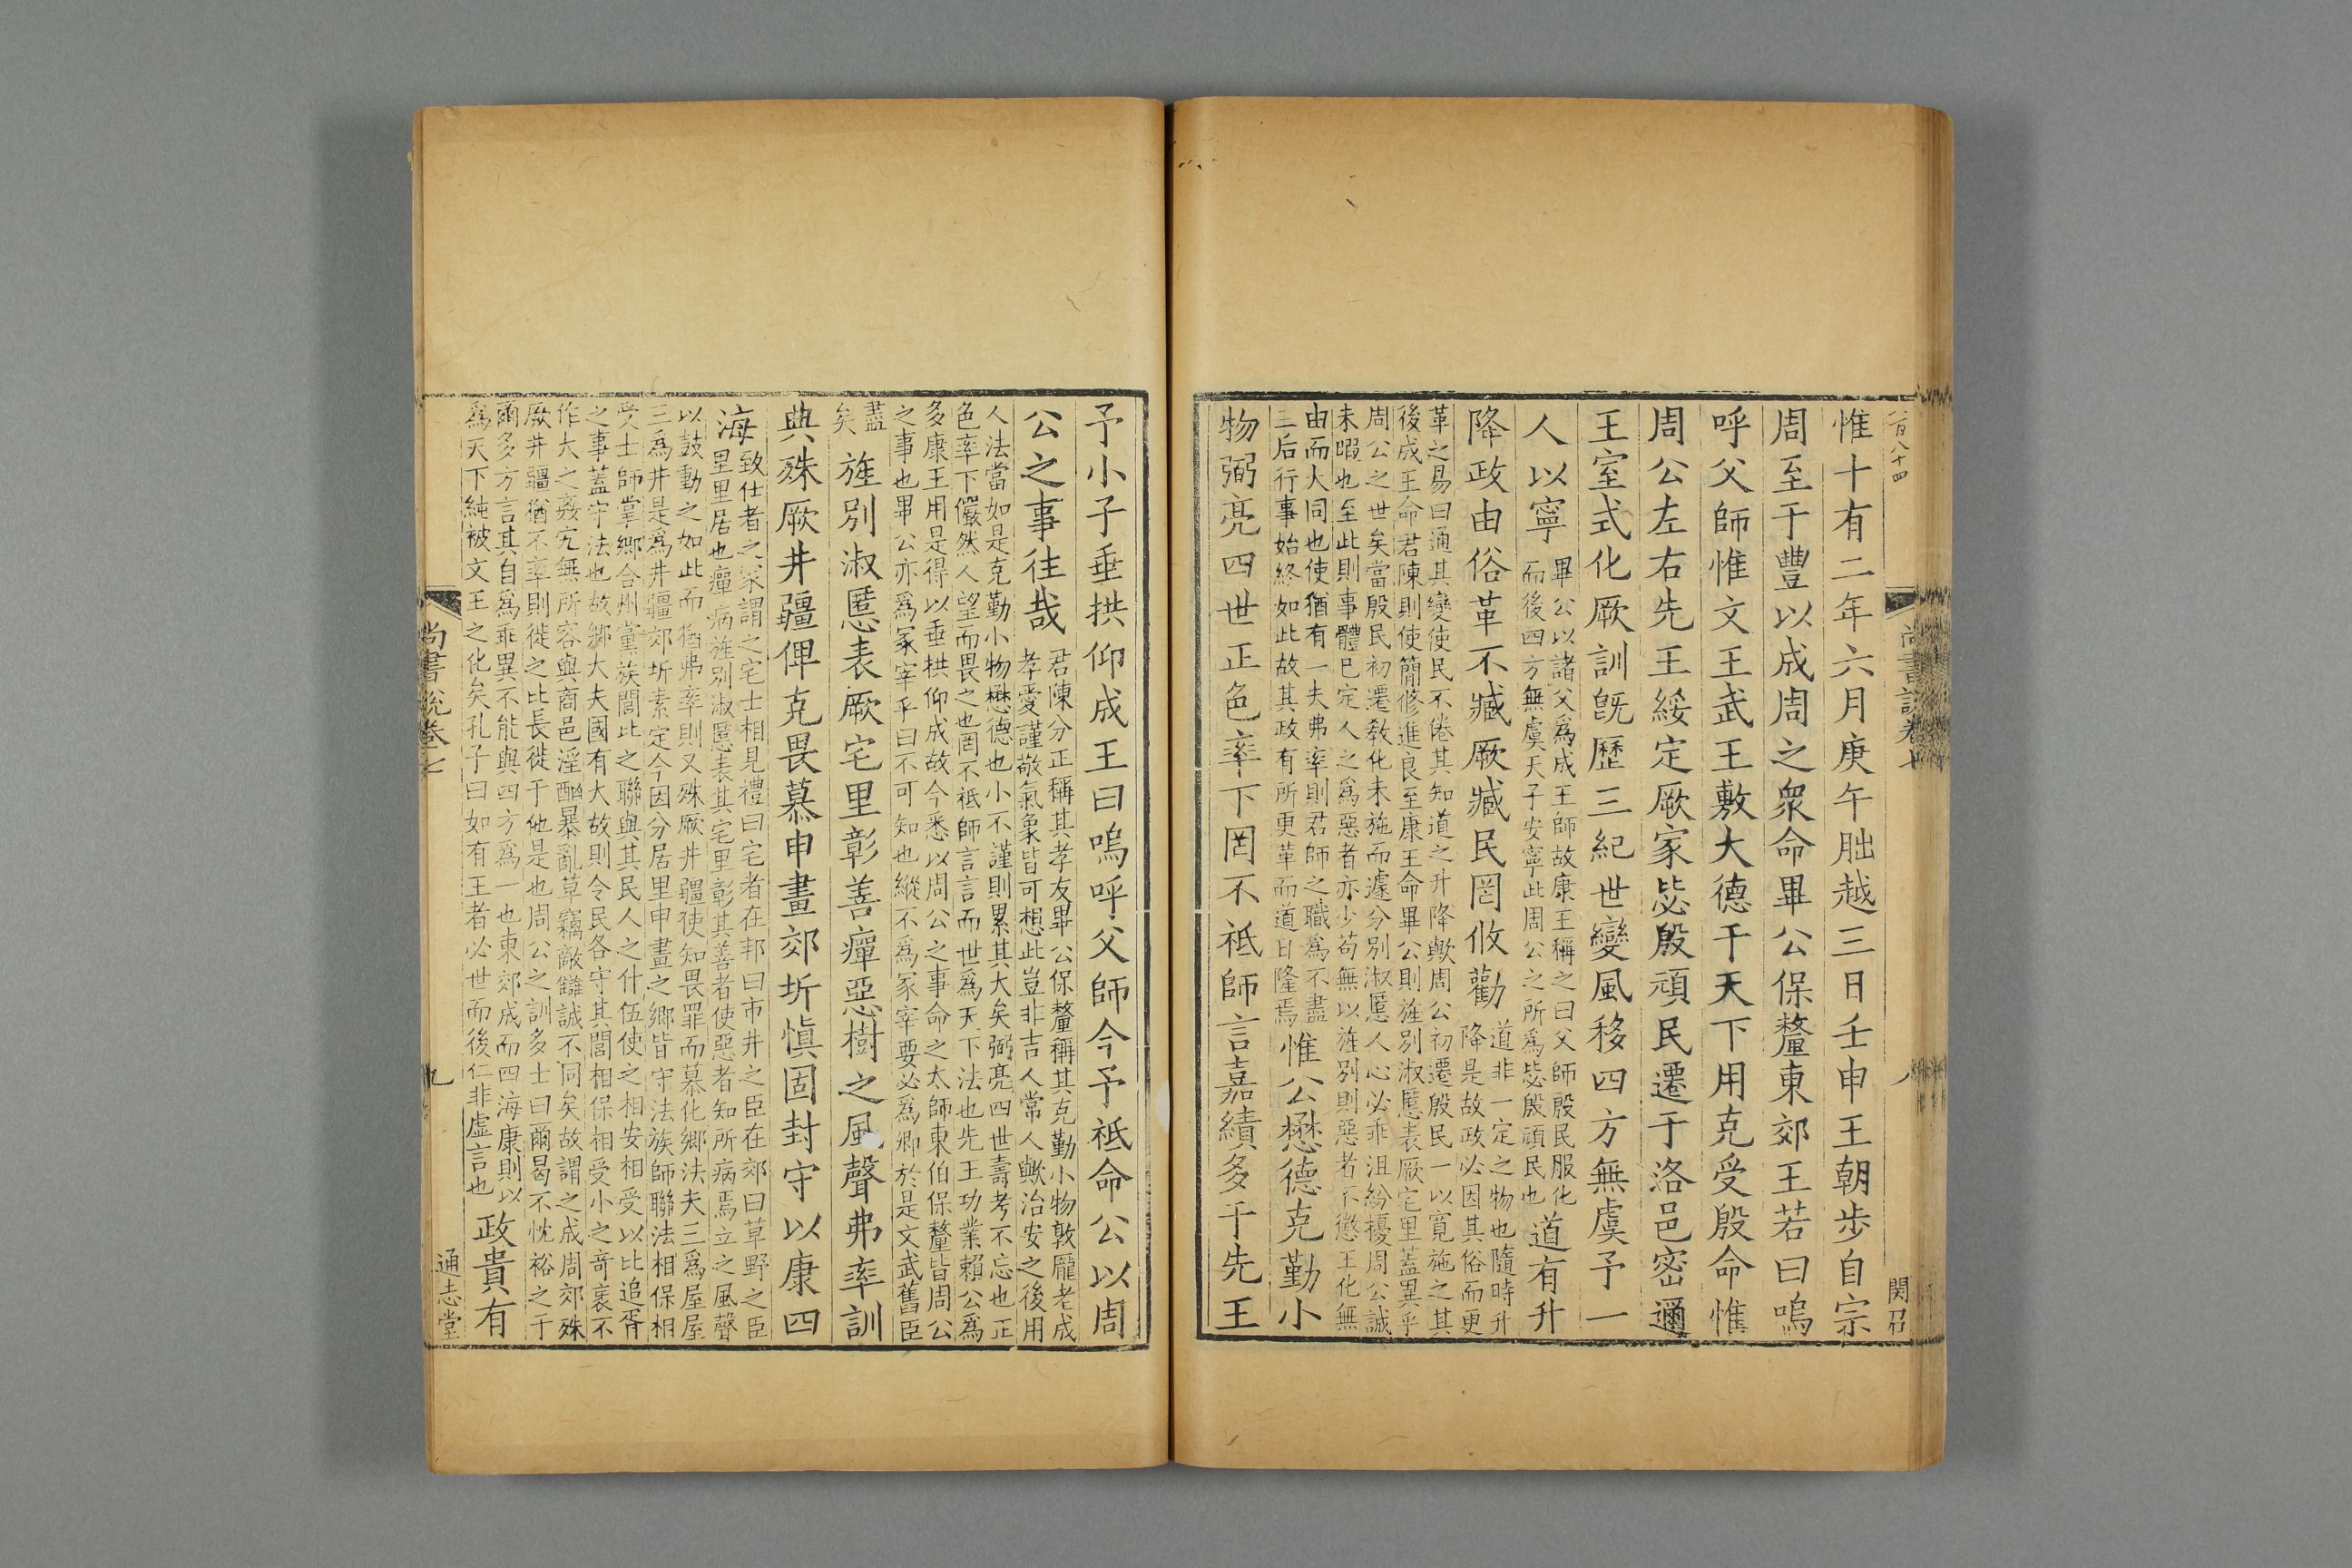 惟十有二年六月庚午朏越三日壬申王朝步自宗
周至于豐以成周之衆命畢公保釐東郊王若曰嗚
呼父師惟文王武王敷大德于天下用克受殷命惟
周公左右先王綏定厥家毖殷頑民遷于洛邑密邇
王室式化厥訓旣歷三紀世變風移四方無虞予一
人以寧
畢公以諸父爲成王師故康王稱之曰父師殷民服化
而後四方無虞天子安寧此周公之所爲毖殷頑民也
道有升
降政由俗革不臧厥臧民罔攸勸
道非一定之物也隨時升
降是故政必因其俗而更
革之易曰通其變使民不倦其知道之升降歟周公初遷殷民一以寛施之其
後成王命君陳則使簡修進良至康王命畢公則旌別淑慝表厥宅里蓋異乎
周公之世矣當殷民初遷敎化未施而遽分別淑慝人心必乖沮紛擾周公誠
未暇也至此則事體巳定人之爲惡者亦少苟無以旌別則惡者不懲王化無
由而大同也使猶有一夫弗率則君師之職爲不盡
三后行事始終如此故其政有所更革而道日隆焉
惟公懋德克勤小
物弼亮四世正色率下罔不祗師言嘉績多于先王
予小子垂拱仰成王曰嗚呼父師今予祗命公以周
公之事往哉
君陳分正稱其孝友畢公保釐稱其克勤小物敦龐老成
孝愛謹敬氣象皆可想此豈非吉人常人歟治安之後用
人法當如是克勤小物懋德也小不謹則累其大矣弼亮四世壽考不忘也正
色率下儼然人望而畏之也罔不祗師言言而世爲天下法也先王功業賴公爲
多康王用是得以垂拱仰成故今悉以周公之事命之太師東伯保釐皆周公
之事也畢公亦爲冢宰乎曰不可知也縱不爲冢宰要必爲卿於是文武舊臣
盡
矣
旌別淑慝表厥宅里彰善癉惡樹之風聲弗率訓
典殊厥井疆俾克畏慕申畫郊圻愼固封守以康四
海
致仕者之家謂之宅士相見禮曰宅者在邦曰市井之臣在郊曰草野之臣
里里居也癉病旌別淑慝表其宅里彰其善者使惡者知所病焉立之風聲
以鼓動之如此而猶弗率則又殊厥井疆使知畏罪而慕化鄉法夫三爲屋屋
三爲井是爲井疆郊圻素定今因分居里申畫之鄉皆守法族師聯法相保相
受士師掌鄉合州黨族閭比之聯與其民人之什伍使之相安相受以比追胥
之事蓋守法也故鄉大夫國有大故則令民各守其閭相保相受小之奇衺不
作大之姦宄無所容與商邑淫酗暴亂草竊敵讎誠不同矣故謂之成周郊殊
厥井疆猶不率則徙之比長徙于他是也周公之訓多士曰爾曷不忱裕之于
爾多方言其自爲乖異不能與四方爲一也東郊成而四海康則以
爲天下純被文王之化矣孔子曰如有王者必世而後仁非虛言也
政貴有
尚書說卷七
九
通志堂
百八十四
尚書說卷七
八
関召